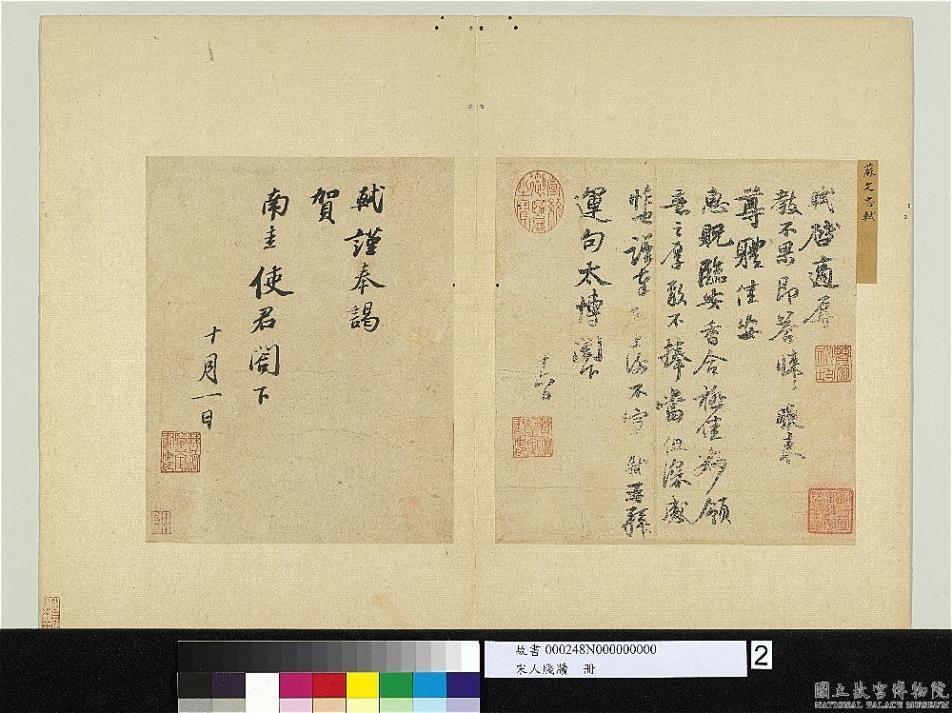 蘇文忠軾
軾啓適辱
教不果即答悚悚晚來
尊體佳安
惠貺臨安香合極佳妙領
意之厚敢不捧當但深感
怍也謹奉啓上謝不宣軾再拜
運句太博閣下
十六日
軾謹奉謁
賀
南圭使君閣下
十月一日
故書 000248N000000000
宋人牋牘 冊
2
國立故宮博物院
NATIONAL PALACE MUSEUM